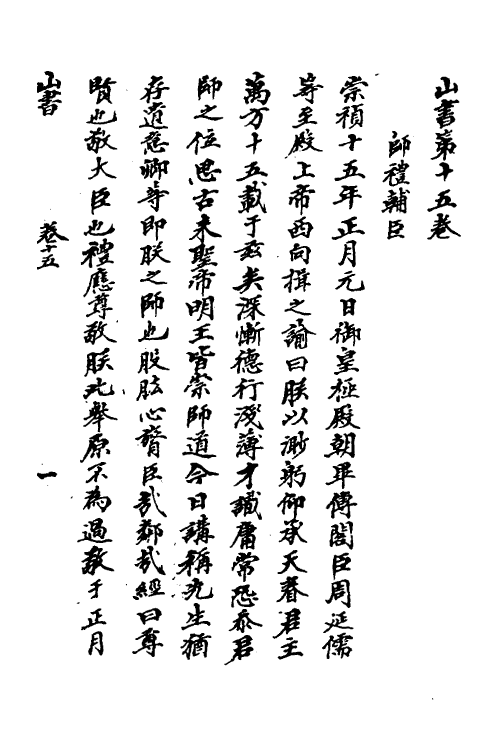 山書第十五卷
師禮輔臣
崇禎十五年正月元日御皇極殿朝畢傳閣臣周延儒
等至殿上帝西向揖之諭曰朕以渺躬仰承天眷君主
萬方十五載于玆矣深慚德行淺薄才識庸常恐忝君
師之位思古來聖帝明王皆崇師道今日講稱先生猶
存遺意卿等即朕之師也股肱心膂臣哉鄰哉經曰尊
賢也敬大臣也禮應尊敬朕此舉原不為過敬于正月
山書
卷十五
一